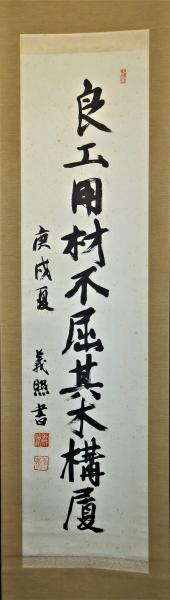 良工用材不屈其木構厦
庚戌夏 義照書